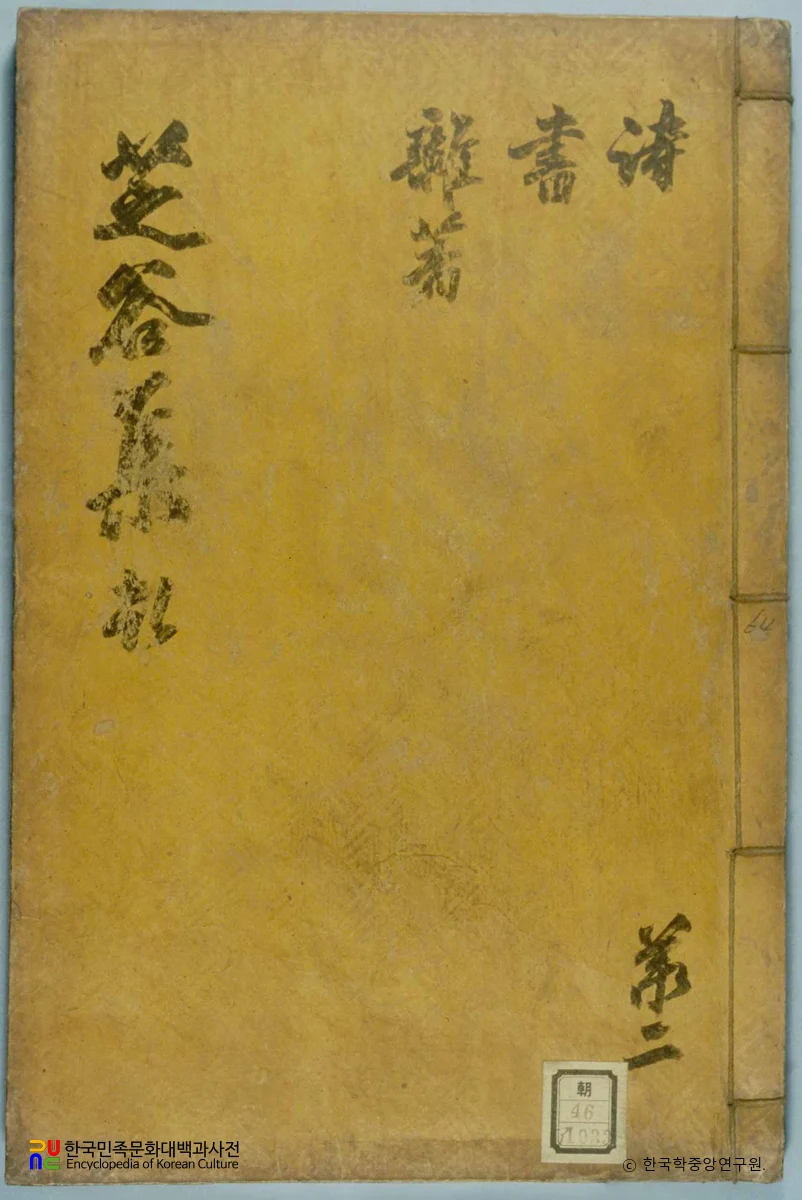 詩
書
雜著
芝谷集
第二
64
朝
46
한국민족문화대백과사전
Encyclopedia of Korean Culture
© 한국학중앙연구원.